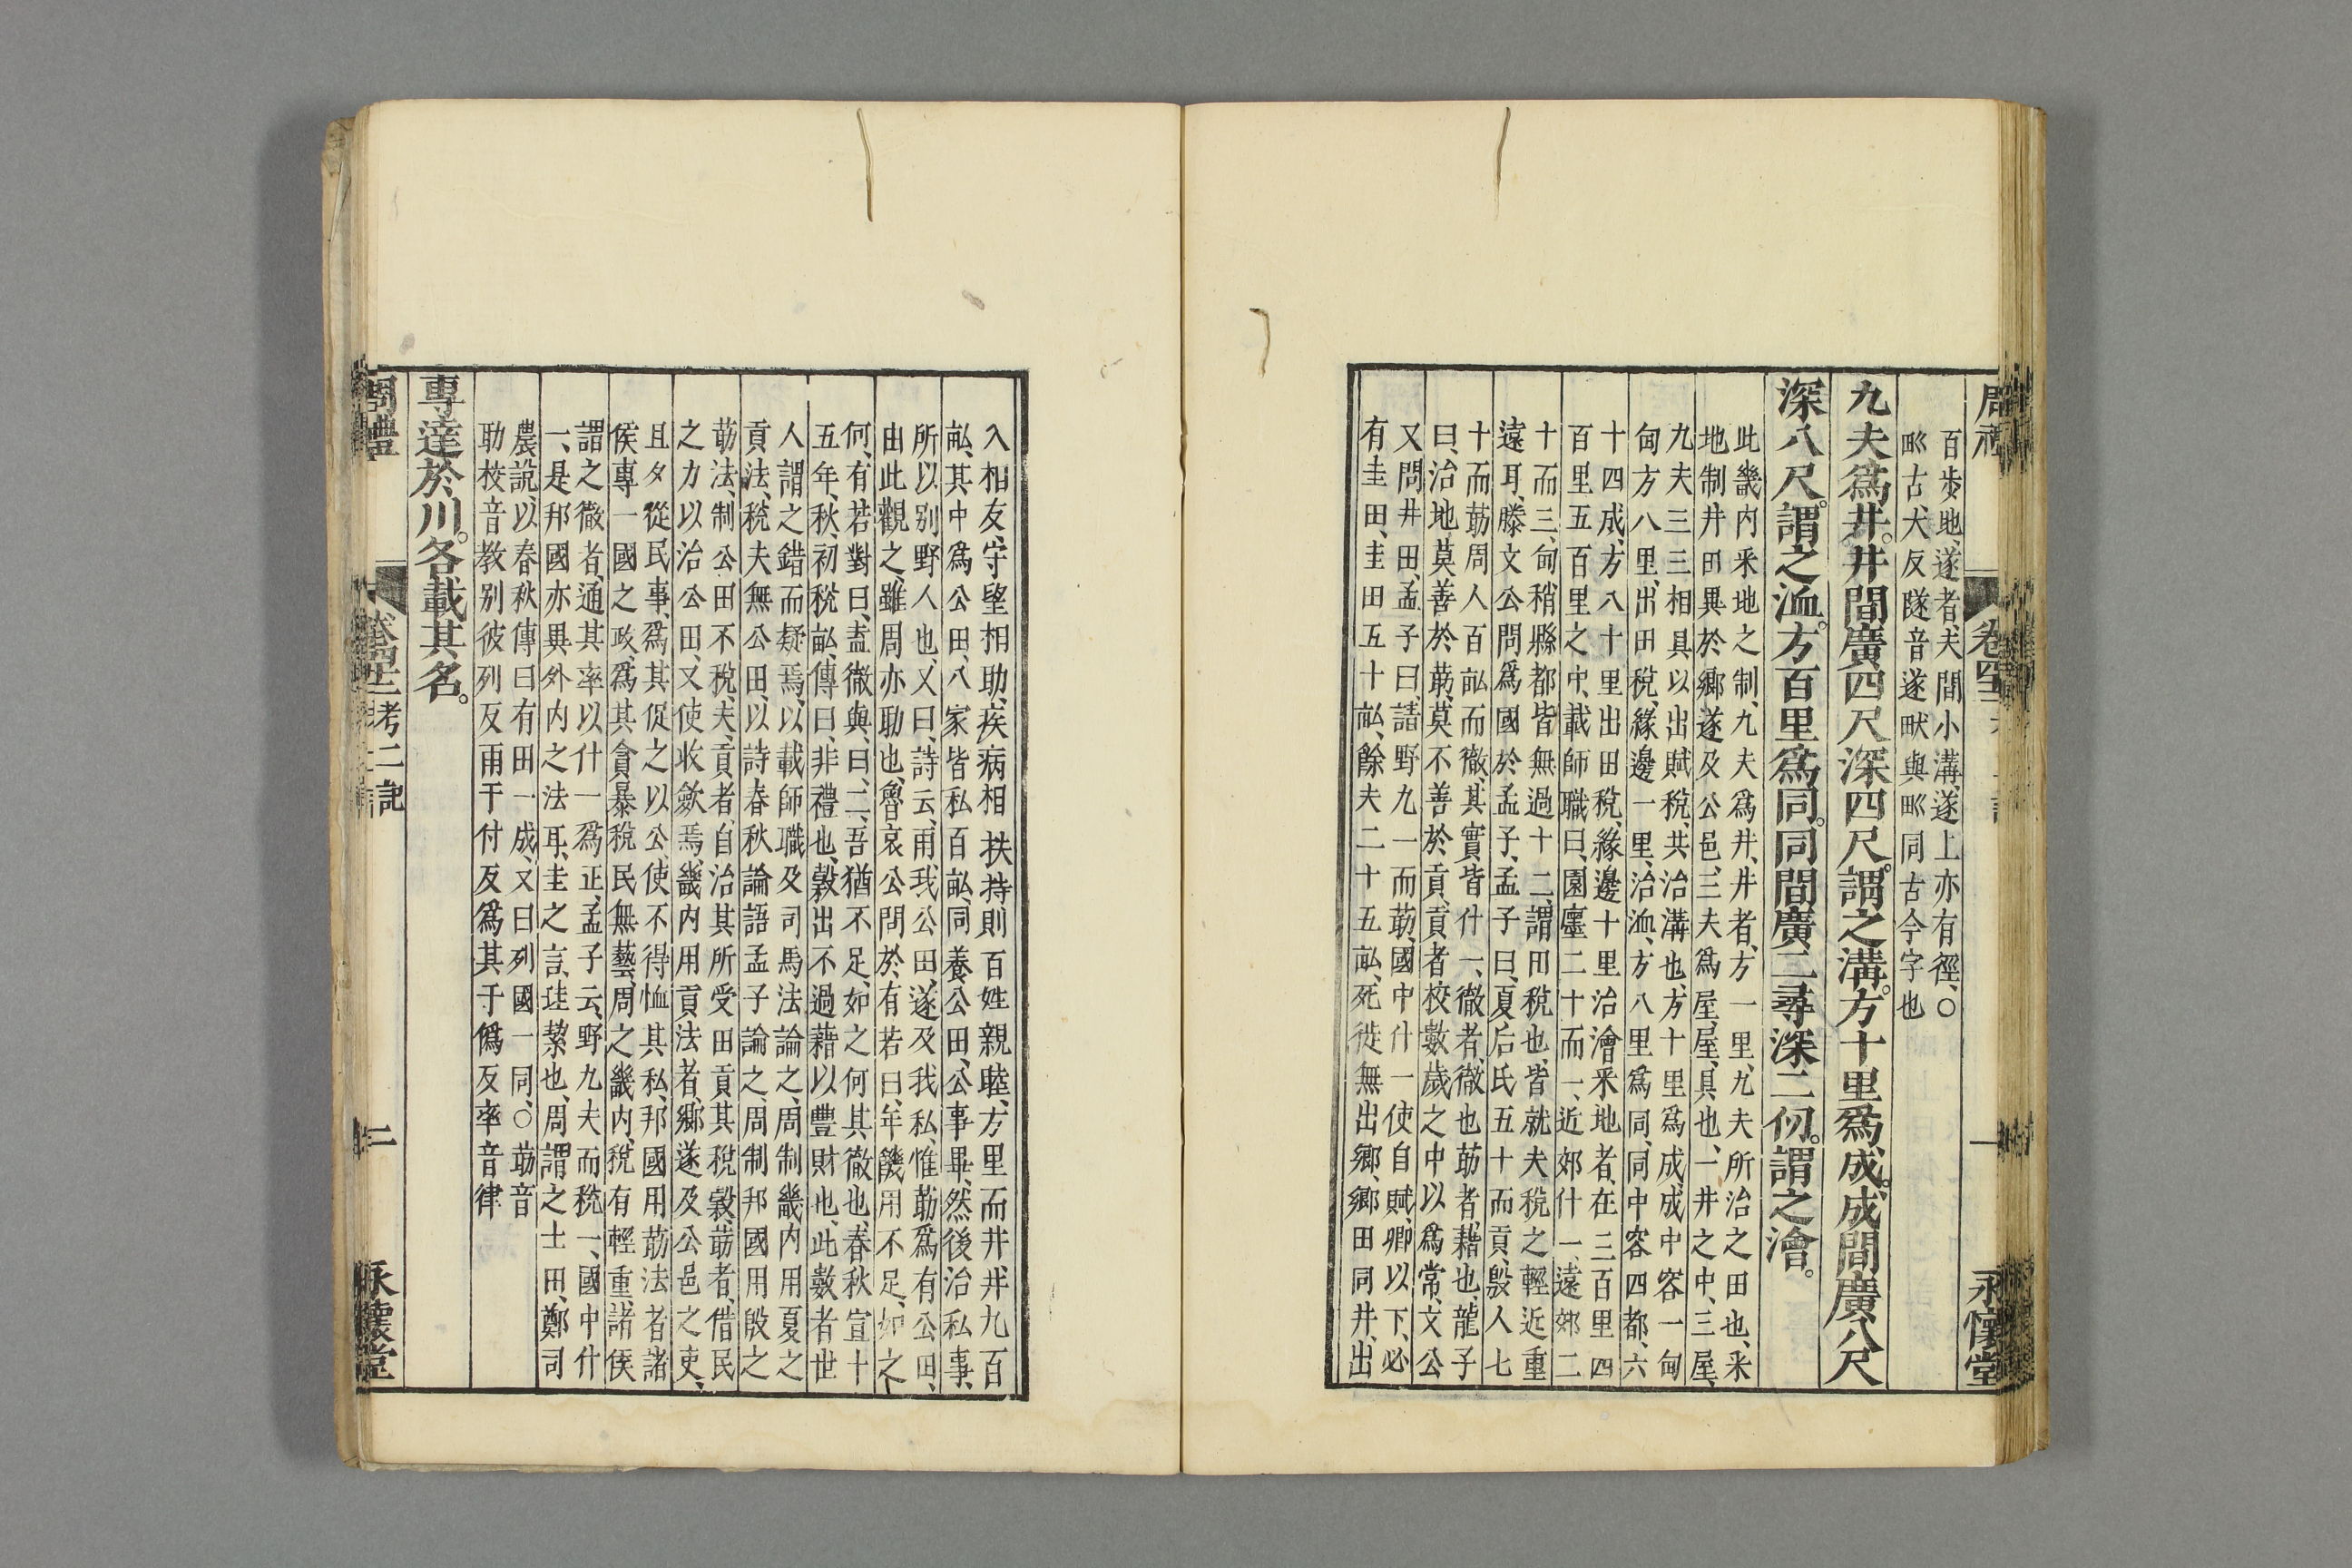 周禮
卷四十二
一
永懷堂
百步地、遂者、夫間小溝、遂上亦有徑、○
𤰕古犬反隧音遂畎與𤰕同古今字也
九夫爲井。井間廣四尺深四尺。謂之溝。方十里爲成。成間廣八尺
深八尺。謂之洫。方百里爲同。同間廣二尋深二仞。謂之澮。
此畿内采地之制、九夫爲井、井者、方一里、九夫所治之田也、采
地制井田異於鄉遂及公邑、三夫爲屋、屋、具也、一井之中、三屋、
九夫三三相具以出賦稅、共治溝也、方十里爲成、成中容一甸
甸方八里、出田稅、緣邊一里、治洫、方八里爲同、同中容四都、六
十四成、方八十里出田稅、緣邊十里治澮采地者、在三百里四
百里五百里之中、載師職曰、園廛二十而一、近郊什一、遠郊二
十而三、甸稍縣都皆無過十二、謂田稅也、皆就夫稅之輕近重
遠耳、滕文公問爲國於孟子、孟子曰、夏后氏五十而貢、殷人七
十而莇周人百畝而徹、其實皆什一、徹者、徹也莇者、藉也、龍子
曰、治地、莫善於莇、莫不善於貢、貢者校數歲之中以爲常、文公
又問井田、孟子曰、請野九一而莇、國中什一使自賦、卿以下、必
有圭田、圭田五十畝、餘夫二十五畝、死徙無出鄉、鄉田同井、出
入相友、守望相助、疾病相扶持、則百姓親睦、方里而井、井九百
畝、其中爲公田、八家皆私百畝、同養公田、公事畢、然後治私事、
所以别野人也、又曰、詩云、雨我公田、遂及我私、惟莇爲有公田、
由此觀之、雖周亦助也、魯哀公問於有若曰、年饑用不足、如之
何、有若對曰、盍徹與、曰、二、吾猶不足、如之何其徹也、春秋宣十
五年、秋、初稅畝、傳曰、非禮也、穀出不過藉以豐財也、此數者世
人謂之錯而疑焉、以載師職及司馬法論之、周制畿内用夏之
貢法、稅夫無公田、以詩春秋論語孟子論之、周制邦國用殷之
莇法、制公田不稅、夫、貢者、自治其所受田貢其稅穀、莇者、借民
之力以治公田、又使收斂焉、畿内用貢法者、鄉遂及公邑之吏、
且夕從民事、爲其促之以公、使不得恤其私、邦國用莇法者諸
侯專一國之政、爲其貪暴稅民無藝、周之畿内、稅有輕重、諸侯
謂之徹者、通其率以什一爲正、孟子云、野九夫而稅一、國中什
一、是邦國亦異外内之法耳、圭之言、珪絜也、周謂之士田、鄭司
農說、以春秋傳曰有田一成、又曰列國一同、○莇音
助校音教别彼列反雨于付反爲其于僞反率音律
專達於川。各載其名。
周禮
卷四十二考工記
二
永懷堂